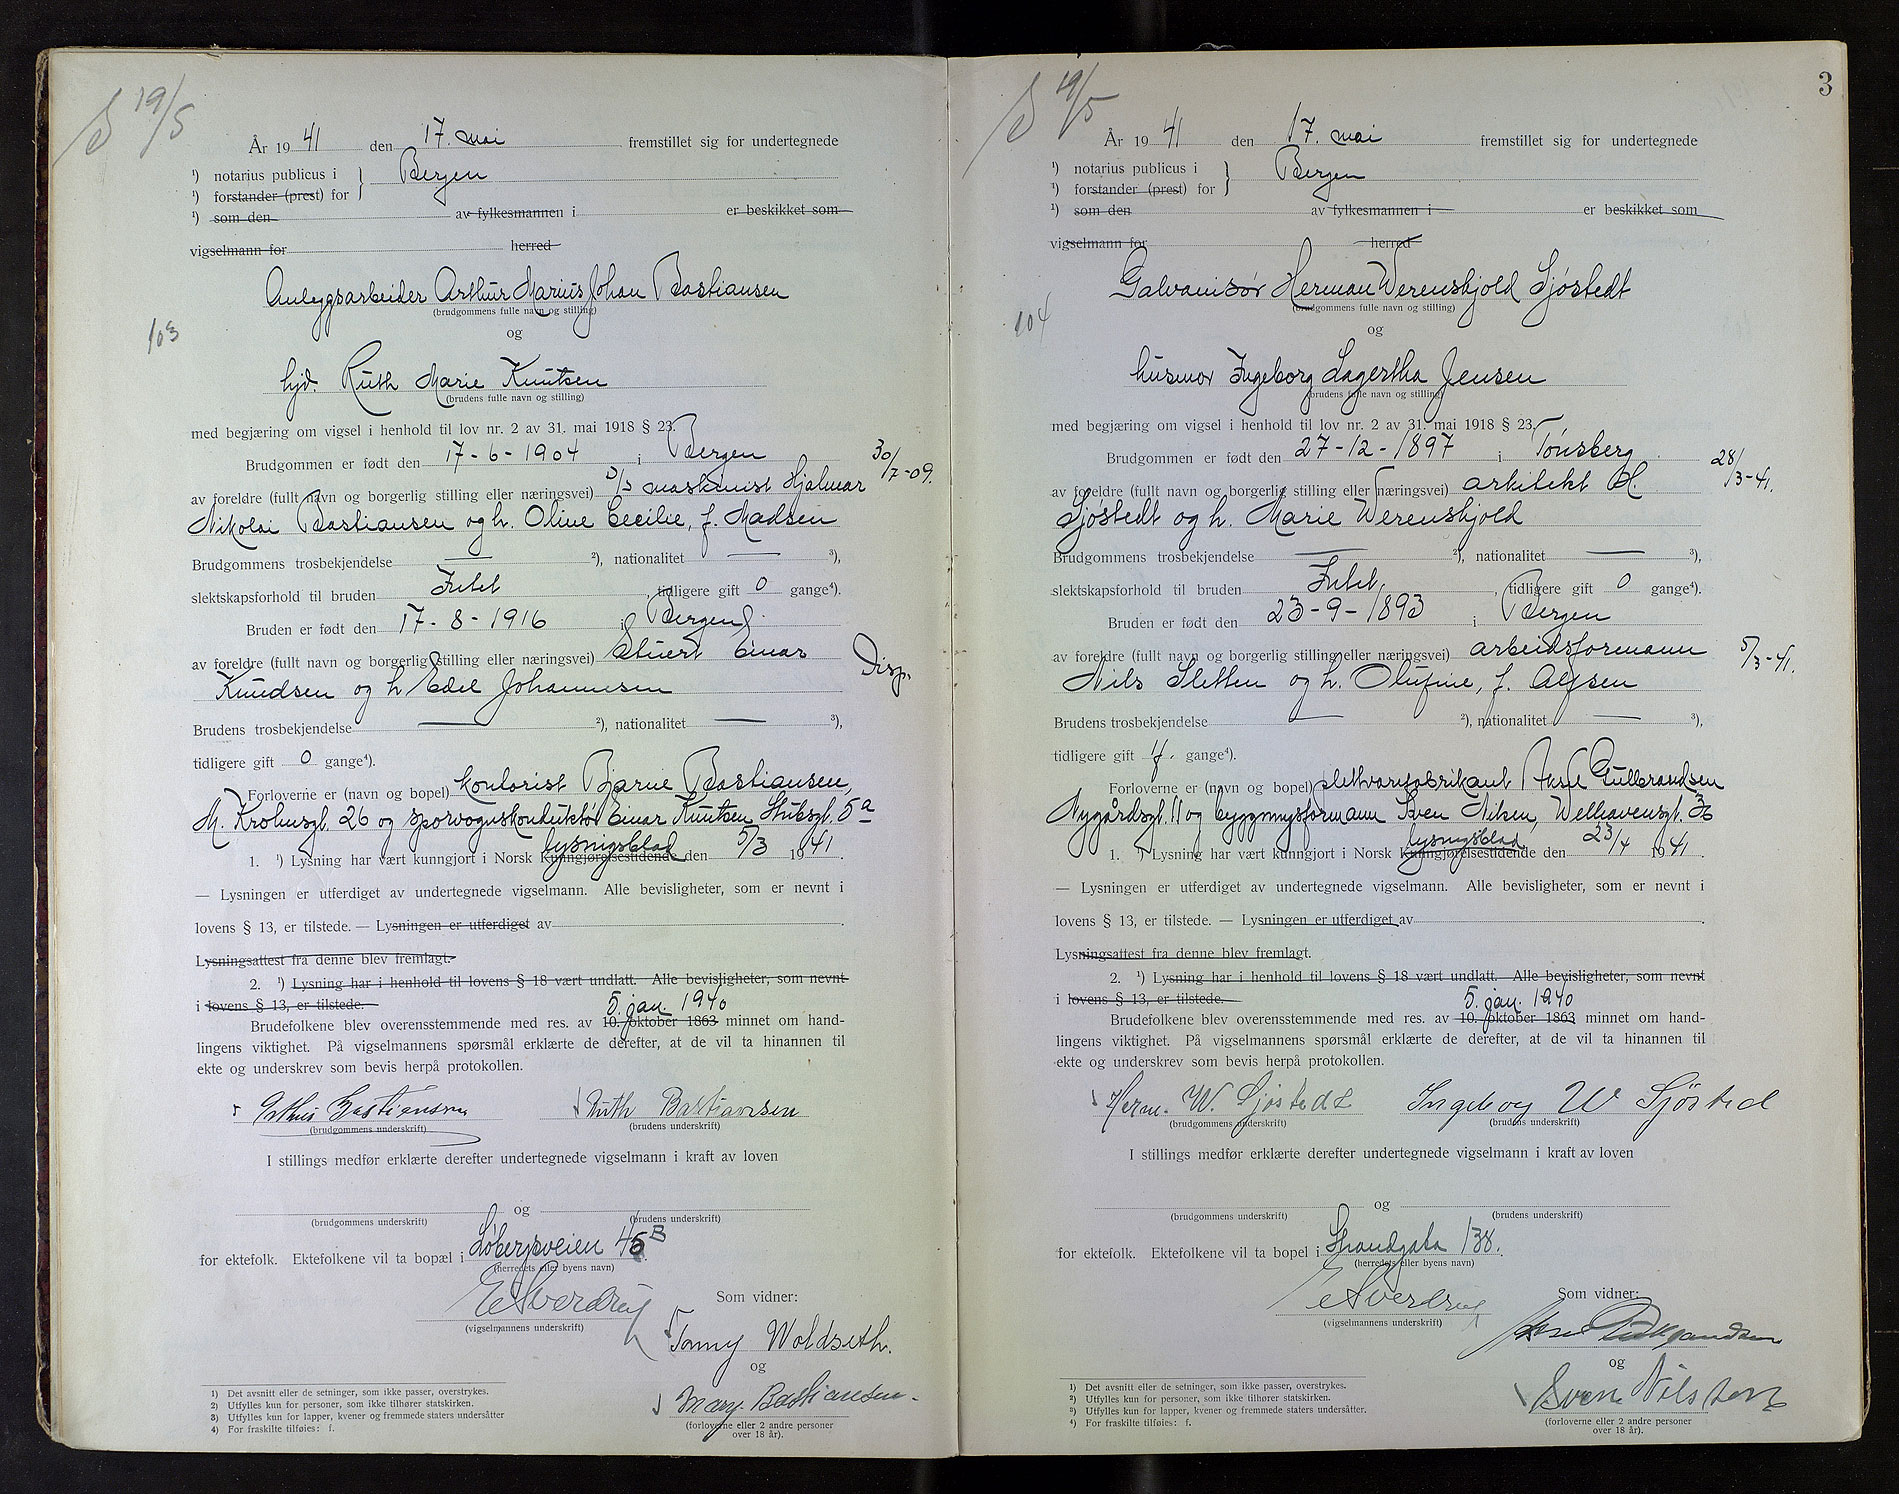 S 19/5
År 19 41 den 17. mai fremstillet sig for undertegnede
¹) notarius publicus i } Bergen
¹) forstander (prest) for
¹) som den av fylkesmannen i er beskikket som
vigselmann for herred
Anleggsarbeider Arthur Marius Johan Bastiansen
(brudgommens fulle navn og stilling)
103
og
hjd. Ruth Marie Knutsen
(brudens fulle navn og stilling)
med begjæring om vigsel i henhold til lov nr. 2 av 31. mai 1918 § 23.
Brudgommen er født den 17-6-1904 i Bergen 30/7-09.
av foreldre (fullt navn og borgerlig stilling eller næringsvei) D/S maskinist Hjalmar
Nikolai Bastiansen og h. Oline Cecilie, f. Madsen
Brudgommens trosbekjendelse — ²), nationalitet — ³),
slektskapsforhold til bruden Intet, tidligere gift 0 gange⁴).
Bruden er født den 17-8-1916 i Bergen
av foreldre (fullt navn og borgerlig stilling eller næringsvei) Stuert Einar Disp.
Knudsen og h Edel Johannesen
Brudens trosbekjendelse — ²), nationalitet — ³),
tidligere gift 0 gange⁴).
Forloverne er (navn og bopel) kontorist Bjarne Bastiansen,
M. Krohnsgt. 26 og sporvognskonduktør Einar Knutsen Stubsgt. 5a
lysningsblad
1. ¹) Lysning har vært kunngjort i Norsk Kunngjørelsestidende den 5/3 1941.
— Lysningen er utferdiget av undertegnede vigselmann. Alle bevisligheter, som er nevnt i
lovens § 13, er tilstede. — Lysningen er utferdiget av
Lysningsattest fra denne blev fremlagt.
2. ¹) Lysning har i henhold til lovens § 18 vært undlatt. Alle bevisligheter, som nevnt
i lovens § 13, er tilstede.
5. jan 1940
Brudefolkene blev overensstemmende med res. av 10. oktober 1863 minnet om hand-
lingens viktighet. På vigselmannens spørsmål erklærte de derefter, at de vil ta hinannen til
ekte og underskrev som bevis herpå protokollen.
Arthur Bastiansen Ruth Bastiansen
(brudgommens underskrift) (brudens underskrift)
I stillings medfør erklærte derefter undertegnede vigselmann i kraft av loven
og
(brudgommens underskrift) (brudens underskrift)
for ektefolk. Ektefolkene vil ta bopæl i Løbergsveien 45B
(herredets eller byens navn)
E Sverdrup Som vidner:
(vigselmannens underskrift)
Tonny Woldseth.
og
Mary Bastiansen
(forloverne eller 2 andre personer
over 18 år).
1) Det avsnitt eller de setninger, som ikke passer, overstrykes.
2) Utfylles kun for personer, som ikke tilhører statskirken.
3) Utfylles kun for lapper, kvener og fremmede staters undersåtter
4) For fraskilte tilføies: f.
3
S 19/5
År 19 41 den 17. mai fremstillet sig for undertegnede
¹) notarius publicus i } Bergen
¹) forstander (prest) for
¹) som den av fylkesmannen i er beskikket som
vigselmann for herred
Galvanisør Herman Werenskjold Sjøstedt
(brudgommens fulle navn og stilling)
104
og
husmor Ingeborg Lagertha Jensen
(brudens fulle navn og stilling)
med begjæring om vigsel i henhold til lov nr. 2 av 31. mai 1918 § 23.
Brudgommen er født den 27-12-1897 i Tønsberg 28/3-41.
av foreldre (fullt navn og borgerlig stilling eller næringsvei) arkitekt H.
Sjøstedt og h. Marie Werenskjold
Brudgommens trosbekjendelse — ²), nationalitet — ³),
slektskapsforhold til bruden Intet, tidligere gift 0 gange⁴).
Bruden er født den 23-9-1893 i Bergen
av foreldre (fullt navn og borgerlig stilling eller næringsvei) arbeidsformann 5/3-41.
Nils Sletten og h. Olufine, f. Alfsen
Brudens trosbekjendelse — ²), nationalitet — ³),
tidligere gift f. gange⁴).
Forloverne er (navn og bopel) Aksel Gulbrandsen
Nygårdsgt. 11 og bygningsformann Sven Nilsen, Welhavensgt.
lysningsblad
1. ¹) Lysning har vært kunngjort i Norsk Kunngjørelsestidende den 23/4 1941.
— Lysningen er utferdiget av undertegnede vigselmann. Alle bevisligheter, som er nevnt i
lovens § 13, er tilstede. — Lysningen er utferdiget av
Lysningsattest fra denne blev fremlagt.
2. ¹) Lysning har i henhold til lovens § 18 vært undlatt. Alle bevisligheter, som nevnt
i lovens § 13, er tilstede.
5. jan. 1940
Brudefolkene blev overensstemmende med res. av 10. oktober 1863 minnet om hand-
lingens viktighet. På vigselmannens spørsmål erklærte de derefter, at de vil ta hinannen til
ekte og underskrev som bevis herpå protokollen.
Herm. W. Sjøstedt Ingeborg W Sjøsted
(brudgommens underskrift) (brudens underskrift)
I stillings medfør erklærte derefter undertegnede vigselmann i kraft av loven
og
(brudgommens underskrift) (brudens underskrift)
for ektefolk. Ektefolkene vil ta bopel i Strandgata 138.
(herredets eller byens navn)
E Sverdrup Som vidner:
(vigselmannens underskrift)
Gulbrandsen
og
Sven Nilsen
(forloverne eller 2 andre personer
over 18 år).
1) Det avsnitt eller de setninger, som ikke passer, overstrykes.
2) Utfylles kun for personer, som ikke tilhører statskirken.
3) Utfylles kun for lapper, kvener og fremmede staters undersåtter.
4) For fraskilte tilføies: f.